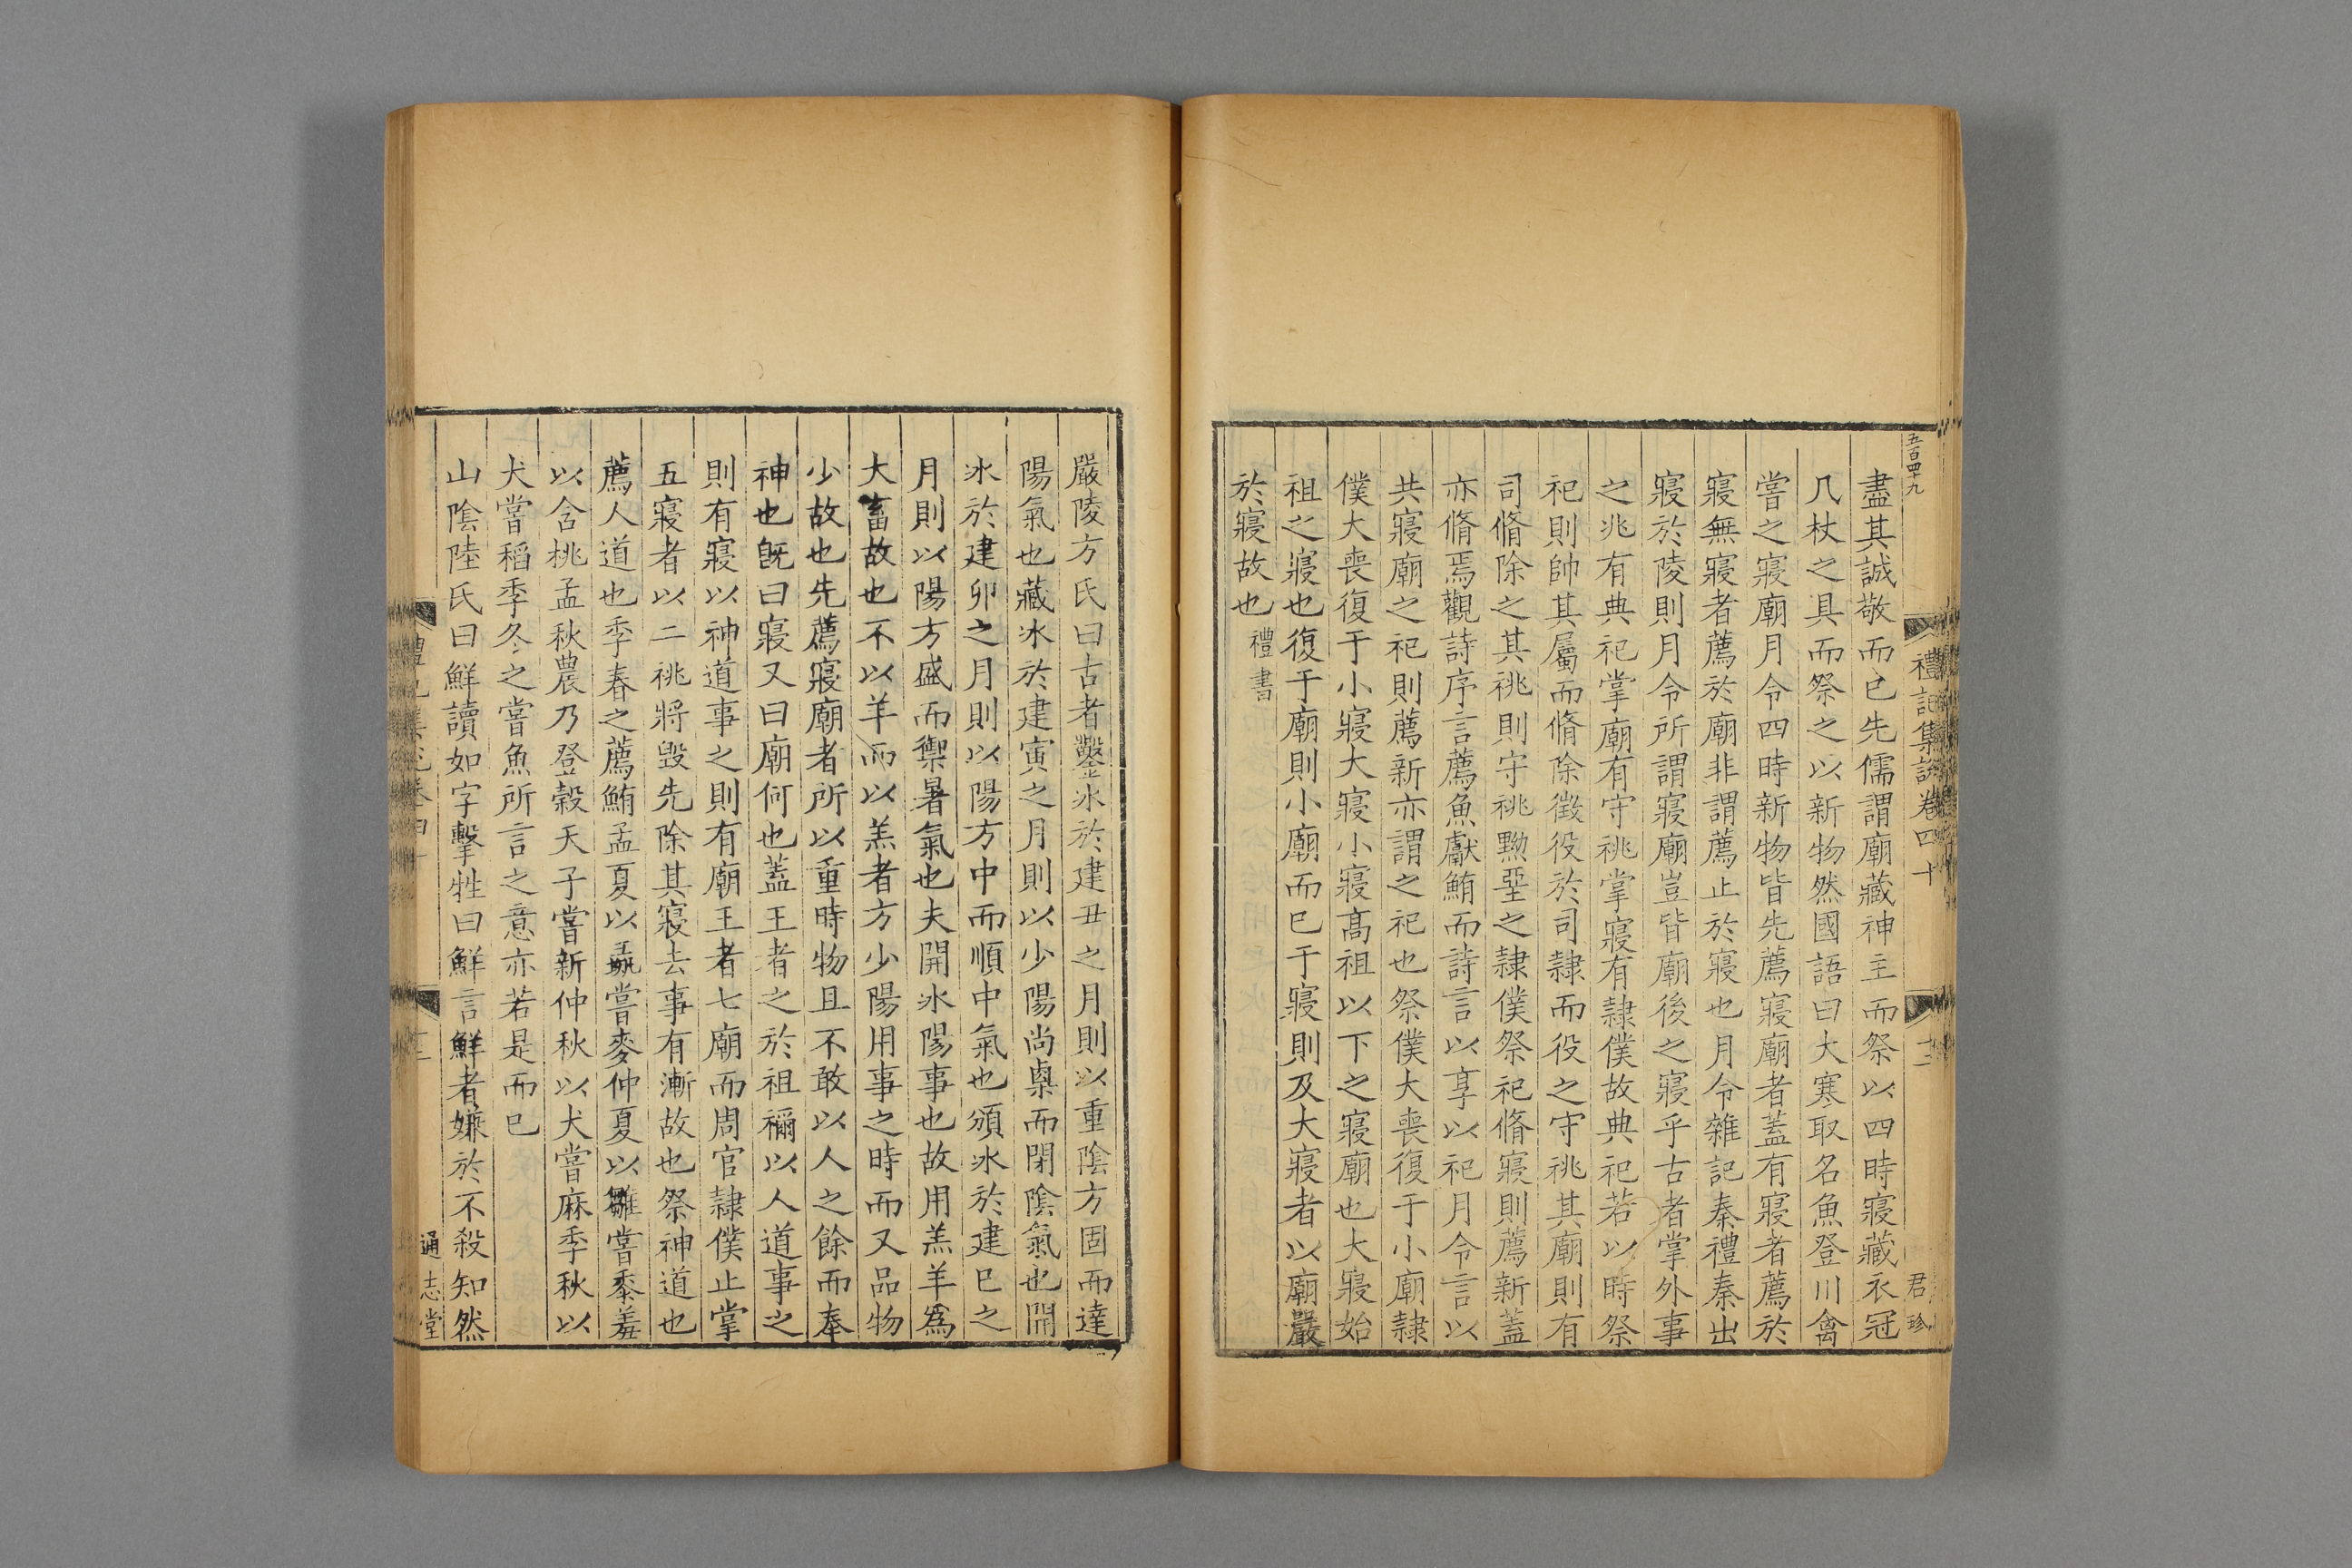 五百四十九
禮記集說卷四十
十二
君珍
盡其誠敬而已先儒謂廟藏神主而祭以四時寢藏衣冠
几杖之具而祭之以新物然國語曰大寒取名魚登川禽
嘗之寢廟月令四時新物皆先薦寢廟者蓋有寢者薦於
寢無寢者薦於廟非謂薦止於寢也月令雜記秦禮秦出
寢於陵則月令所謂寢廟豈皆廟後之寢乎古者掌外事
之兆有典祀掌廟有守祧掌寢有隸僕故典祀若以時祭
祀則帥其屬而脩除徵役於司隸而役之守祧其廟則有
司脩除之其祧則守祧黝堊之隸僕祭祀脩寢則薦新蓋
亦脩焉觀詩序言薦魚獻鮪而詩言以享以祀月令言以
共寢廟之祀則薦新亦謂之祀也祭僕大喪復于小廟隸
僕大喪復于小寢大寢小寢高祖以下之寢廟也大寢始
祖之寢也復于廟則小廟而已于寢則及大寢者以廟嚴
於寢故也禮書
嚴陵方氏曰古者鑿冰於建丑之月則以重陰方固而達
陽氣也藏冰於建寅之月則以少陽尚㮚而閉陰氣也開
冰於建卯之月則以陽方中而順中氣也頒冰於建巳之
月則以陽方盛而禦暑氣也夫開冰陽事也故用羔羊爲
大畜故也不以羊而以羔者方少陽用事之時而又品物
少故也先薦寢廟者所以重時物且不敢以人之餘而奉
神也旣曰寢又曰廟何也蓋王者之於祖禰以人道事之
則有寢以神道事之則有廟王者七廟而周官隸僕止掌
五寢者以二祧將毀先除其寢去事有漸故也祭神道也
薦人道也季春之薦鮪孟夏以彘嘗麥仲夏以雛嘗黍羞
以含桃孟秋農乃登穀天子嘗新仲秋以犬嘗麻季秋以
犬嘗稻季冬之嘗魚所言之意亦若是而已
山陰陸氏曰鮮讀如字擊牲曰鮮言鮮者嫌於不殺知然
通志堂